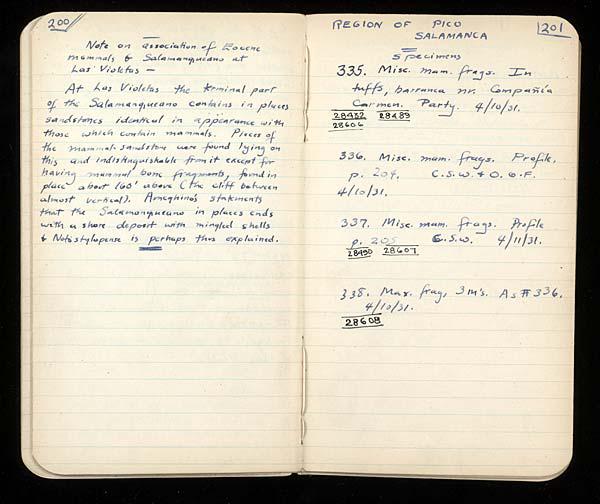 200
Note on association of Eocene
mammals & Salamanqueano at
Las Violetas —
At Las Violetas the terminal part
of the Salamanqueano contains in places
sandstones identical in appearance with
those which contain mammals. Pieces of
the mammal sandstone were found lying on
this and indistinguishable from it except for
having mammal bone fragments, found in
place about 160' above (the cliff between
almost vertical). Ameghino's statements
that the Salamanqueano in places ends
with a shore deposit with mingled shells
& Notostylopense is perhaps thus explained.
REGION OF PICO
SALAMANCA
201
Specimens
335. Misc. mam. frags. In
tuffs, barranca nr. Compañia
Carmen. Party. 4/10/31.
28432 28489
28606
336. Misc. mam. frags. Profile,
p. 204. C.S.W. & O.G.F.
4/10/31.
337. Misc. mam. frags. Profile
p. 205 C.S.W. 4/11/31.
28490 28607
338. Max. frag, 3 m's. As #336.
4/10/31.
28608